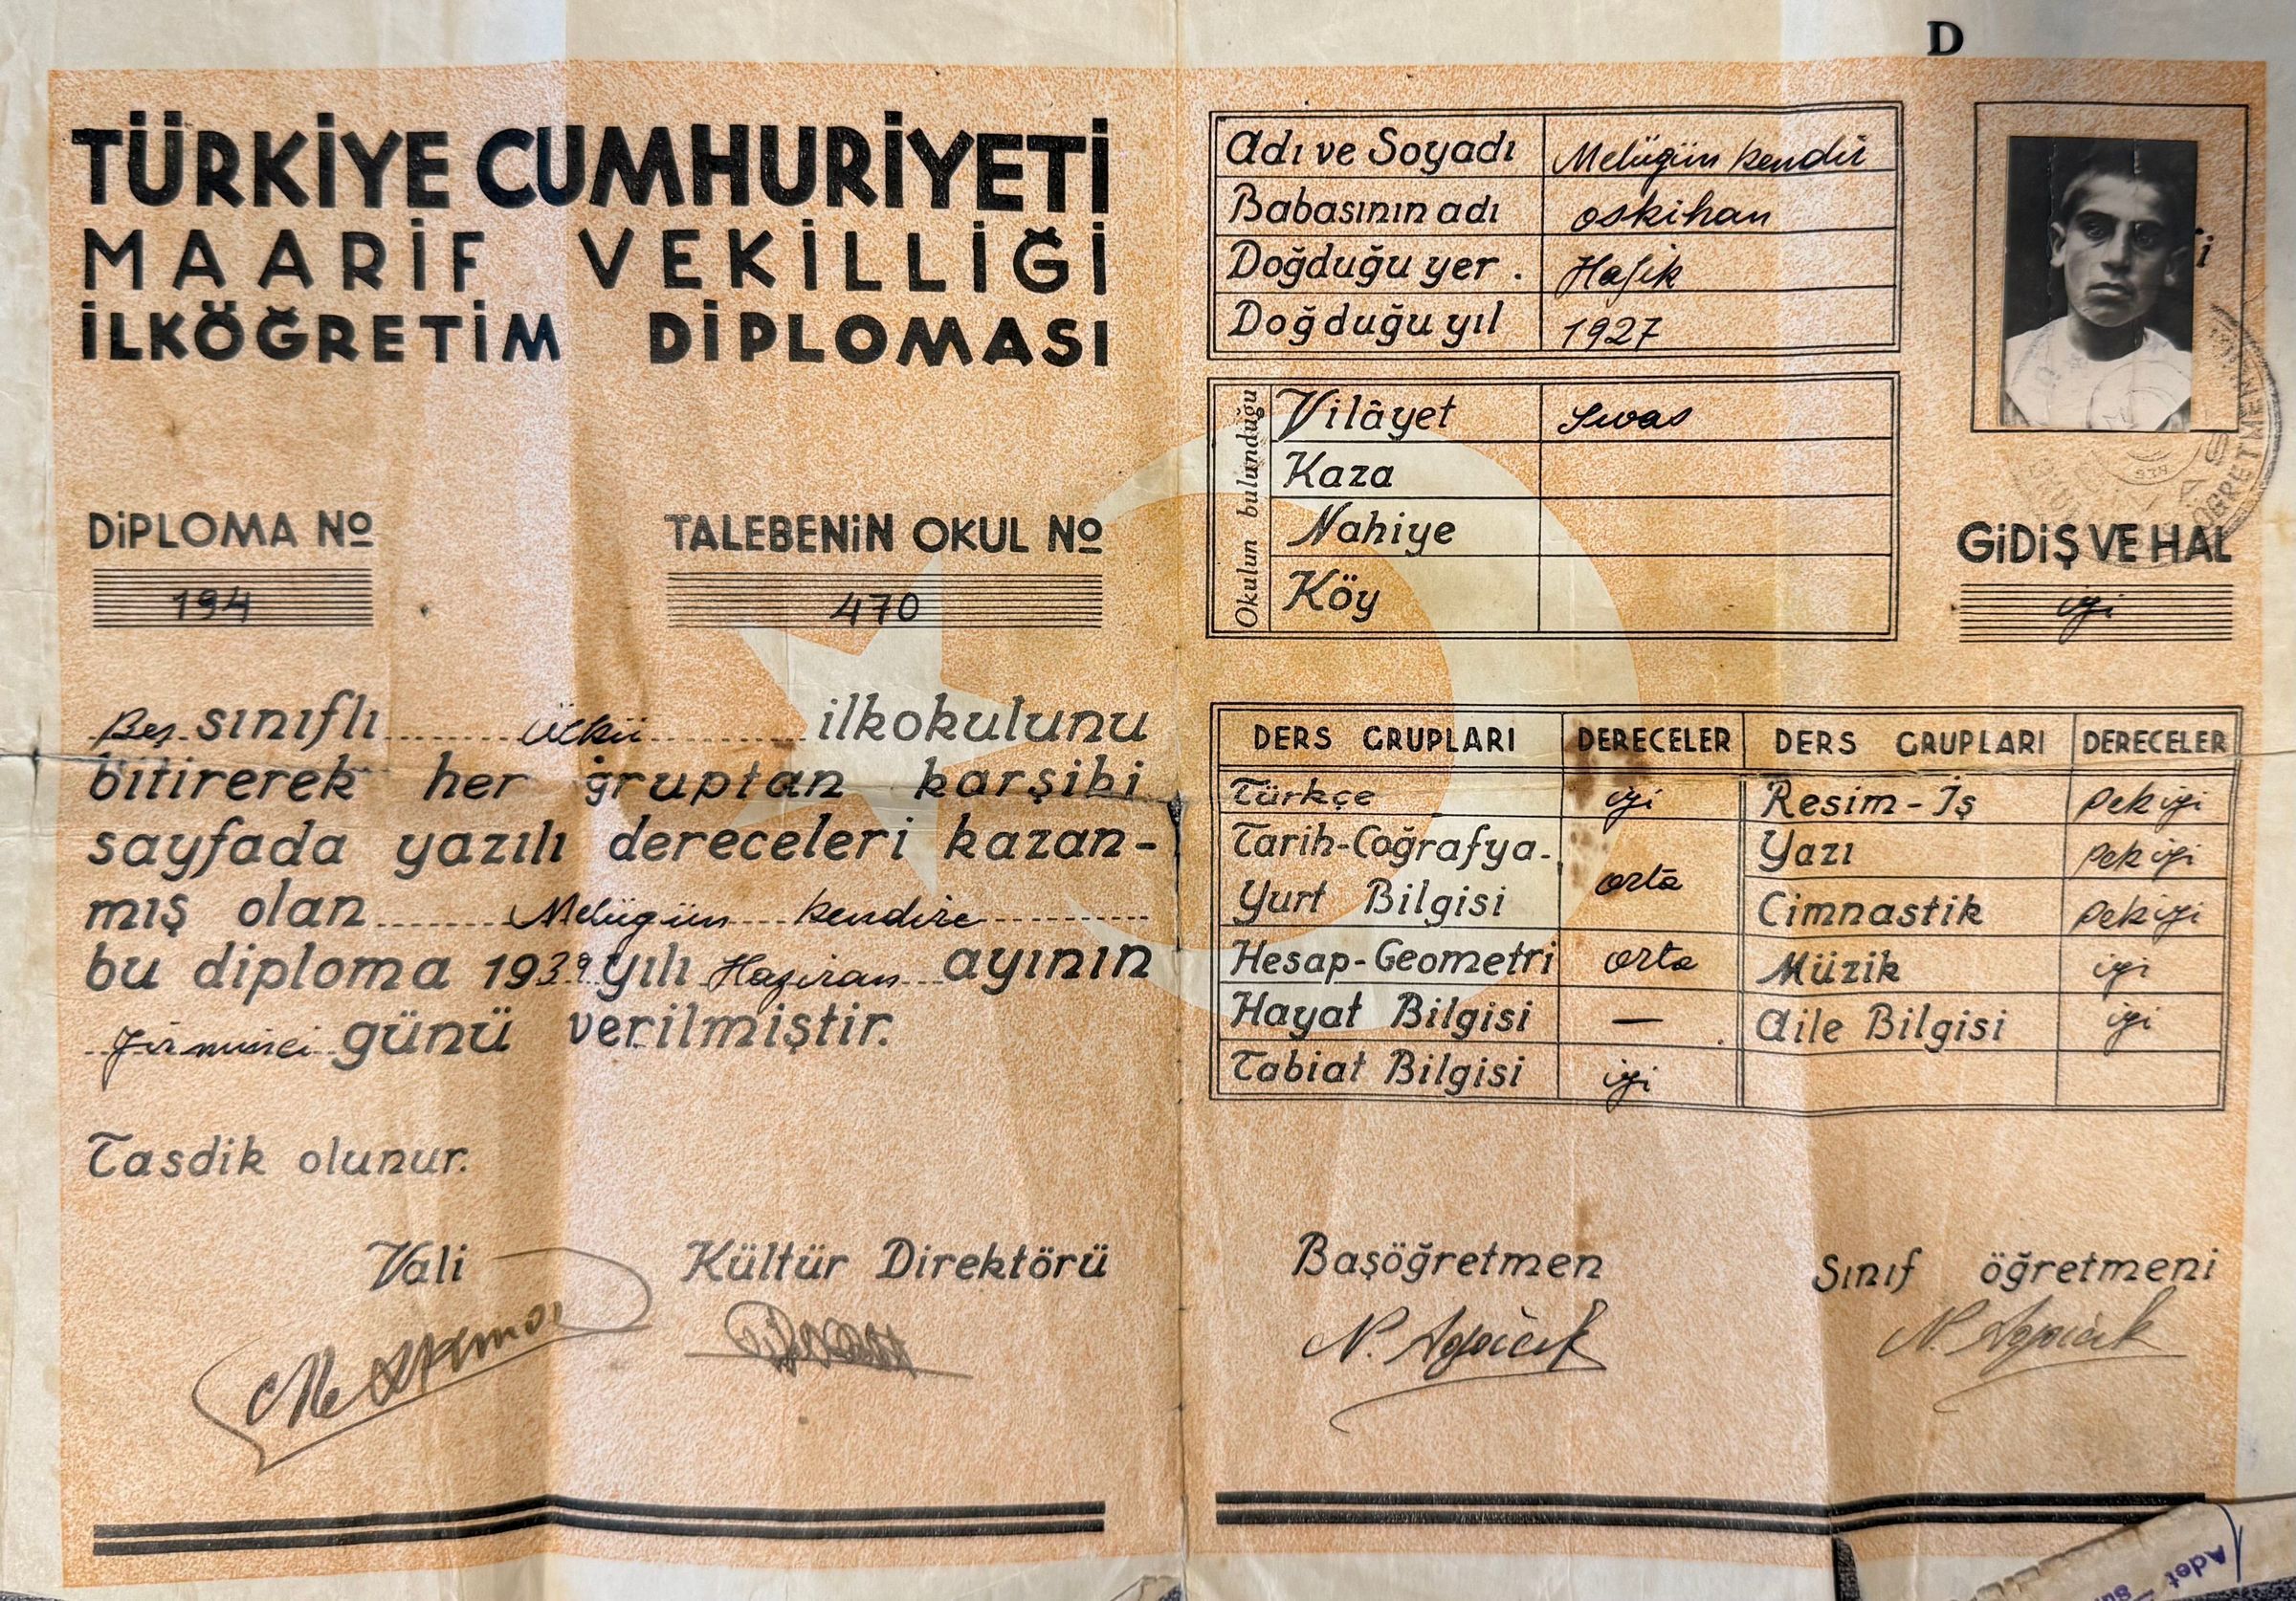 D
TÜRKİYE CUMHURİYETİ
MAARİF VEKİLLİĞİ
İLKÖĞRETİM DİPLOMASI
DİPLOMA Nº
194
TALEBENİN OKUL Nº
470
Beş sınıflı Ülkü ilkokulunu
bitirerek her gruptan karşıki
sayfada yazılı dereceleri kazan-
mış olan Melügün Kendire
bu diploma 1939 yılı Haziran ayının
yirminci günü verilmiştir.
Tasdik olunur.
Vali
Kültür Direktörü
Adı ve Soyadı Melügün Kendir
Babasının adı oskihan
Doğduğu yer . Hafik
Doğduğu yıl 1927
Okulun bulunduğu
Vilâyet Sivas
Kaza
Nahiye
Köy
ÖĞRETMEN
GİDİŞ VE HAL
iyi
DERS GRUPLARI DERECELER DERS GRUPLARI DERECELER
Türkçe iyi Resim-İş Pekiyi
Tarih-Coğrafya- Yazı Pekiyi
Yurt Bilgisi orta Cimnastik Pekiyi
Hesap-Geometri orta Müzik iyi
Hayat Bilgisi — Aile Bilgisi iyi
Tabiat Bilgisi iyi
Başöğretmen
Sınıf öğretmeni
Adet